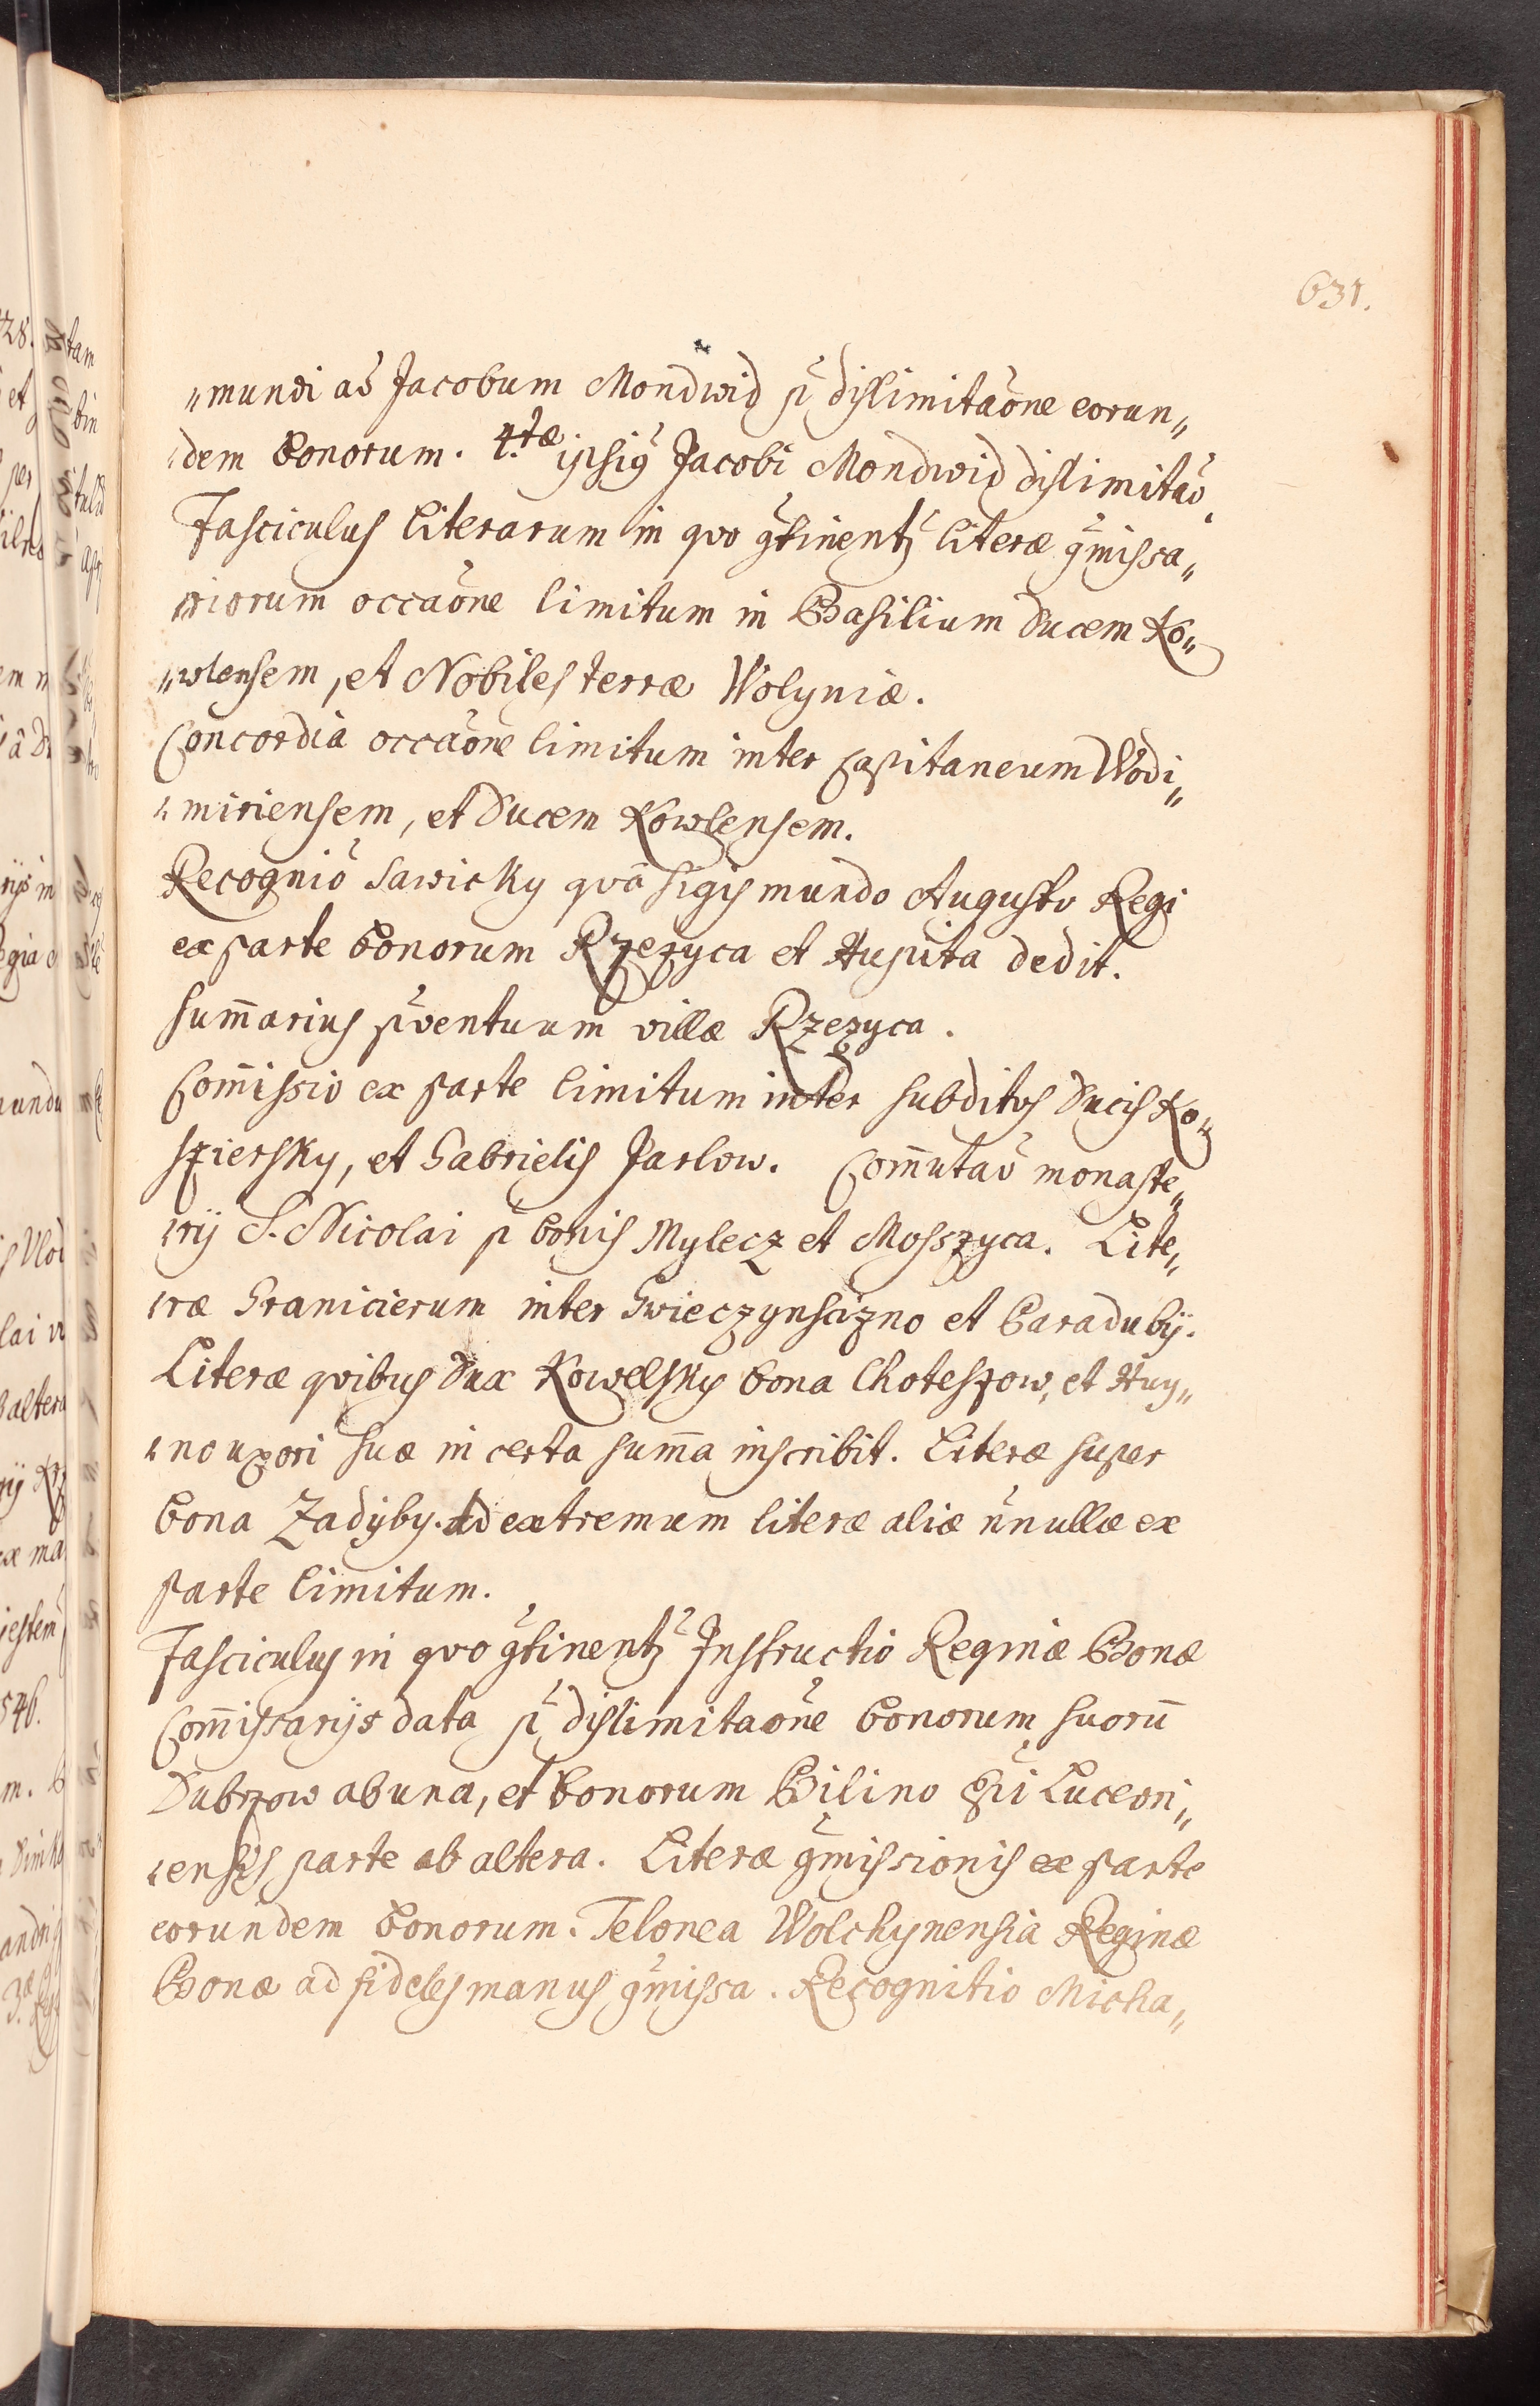 631.
„mundi ad Jacobum Mondwid p̃ dislimitaõne eorun„
„dem bonorum. 4.tæ ipsiꝰ Jacobi Mondwid dislimitaõ.
Fasciculus literarum in qvo g̃tinentȝ literæ g̃missa„
„riorum occaõne limitum in Basilium Ducem Ko„
„wlensem, et Nobiles terræ Wolyniæ.
Concordia occaõne limitum inter Capitaneum Wodi„
„miriensem, et Ducem Kowlensem.
Recogniõ Sawicky qvã Sigismundo Augusto Regi
ex parte bonorum Rzezyca et Huputa dedit.
Sum̃arius p̃ventuum villæ Rzezyca.
Com̃issio ex parte limitum inter subditos Ducis Ko„
sziersky, et Gabrielis Jarlow. Com̃utaõ monaste„
„rij S. Nicolai p̃ bonis Mylecz et Moszzyca. Lite„
„ræ Granicierum inter Swieczynscizno et Paradubij.
Literæ qvibus Dux Kowelsky bona Choteszow, et Huy„
„no uxori suæ in certa sum̃a inscribit. Literæ super
bona Zadyby. Ad extremum literæ aliæ ñnullæ ex
parte limitum.
Fasciculus in qvo g̃tinentȝ Instructio Reginæ Bonæ
Com̃issarijs data p̃ dislimitaõne bonorum suorũ
Dubrzow ab una, et bonorum Bilino Epĩ Luceori„
„ensis parte ab altera. Literæ g̃missionis ex parte
eorundem bonorum. Telonea Wolchynensia Reginæ
Bonæ ad fideles manus g̃missa. Recognitio Micha„